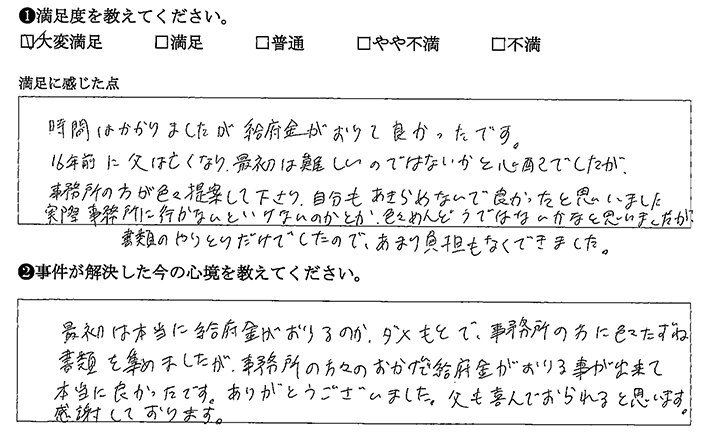 ❶満足度を教えてください。
☑大変満足 □満足 □普通 □やや不満 □不満
満足に感じた点
時間はかかりましたが給府金がおりて良かったです。
16年前に父は亡くなり、最初は難しいのではないかと心配でしたが、
事務所の方が色々提案して下さり、自分もあきらめないで良かったと思いました
実際事務所に行かないといけないのかとか、色々めんどうではないかなと思いましたが、
書類のやりとりだけでしたので、あまり負担もなくできました。
❷事件が解決した今の心境を教えてください。
最初は本当に給府金がおりるのか、ダメもとで、事務所の方に色々たずね
書類を集めましたが、事務所の方々のおかげで給府金がおりる事が出来て
本当に良かったです。ありがとうございました。父も喜んでおられると思います。
感謝しております。